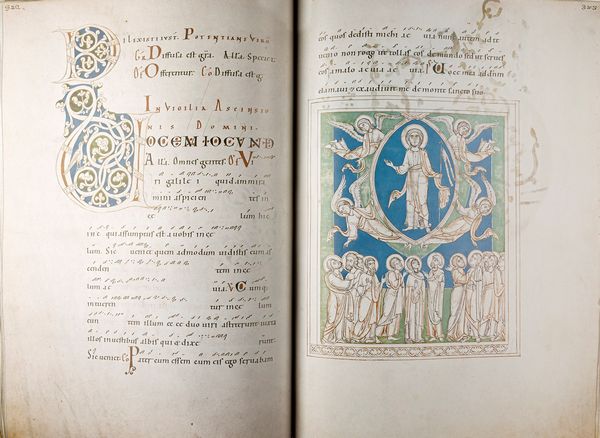 322
Dilexisti iust. Potentiane Virg̅
Ḡa Diffusa est gr̅a. Alla. Specie t
Of Offerentur. Cō Diffusa est g
In Vigilia Ascensio
nis Domini.
Vocem iocund
Alla. Omnes gentes. Of Vi
ri galile i quid ammira
mini aspicien tes in
ec lum hic
ihc qui assumptus est a uobis in ec
lum. Sic ueniet quem admodum uidistis eum as
cenden tem in ec
lum ac uia. V Cumq;
intueren tur in ec lum
eun tem illum ec ce duo uiri astiterunt iuxta
illos in uestibus albis qui & dixe runt.
Sic ueniet. Cō Pater cum essem cum eis ego seruabam
323
eos quos dedisti michi ac uia nunc autem ad te
uenio non rogo ut tollas eos de mundo sed ut serues
eos a malo ac uia ac uia.
clamaui & exaudiuit me de monte sancto suo